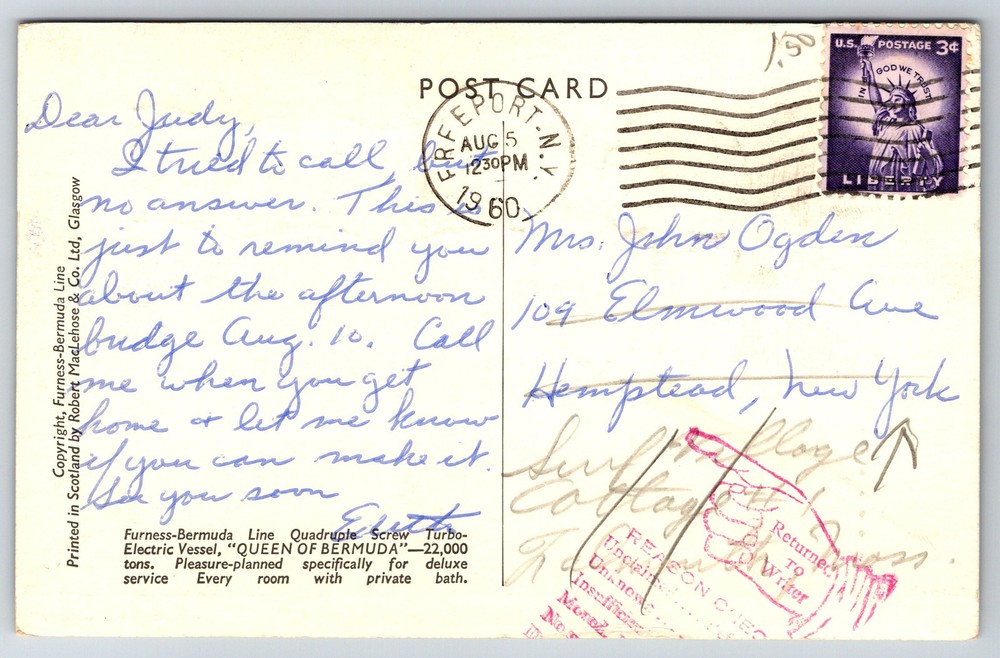 1.50
U.S. POSTAGE 3¢
IN GOD WE TRUST
LIBERTY
POST CARD
FREEPORT-N.Y.
AUG 5
12 30 PM
1960
Dear Judy,
I tried to call, but
no answer. This is
just to remind you
about the afternoon
bridge Aug. 10. Call
me when you get
home & let me know
if you can make it.
See you soon
Mrs. John Ogden
109 Elmwood Ave
Hempstead, New York
Surf Village
Cottage
Falmouth, Mass.
Returned
TO
Writer
REASON CHEC
Unclaimed
Unknown
Insufficient
Moved
No
Copyright, Furness-Bermuda Line
Printed in Scotland by Robert MacLehose & Co. Ltd, Glasgow
Furness-Bermuda Line Quadruple Screw Turbo-
Electric Vessel, "QUEEN OF BERMUDA"—22,000
tons. Pleasure-planned specifically for deluxe
service Every room with private bath.